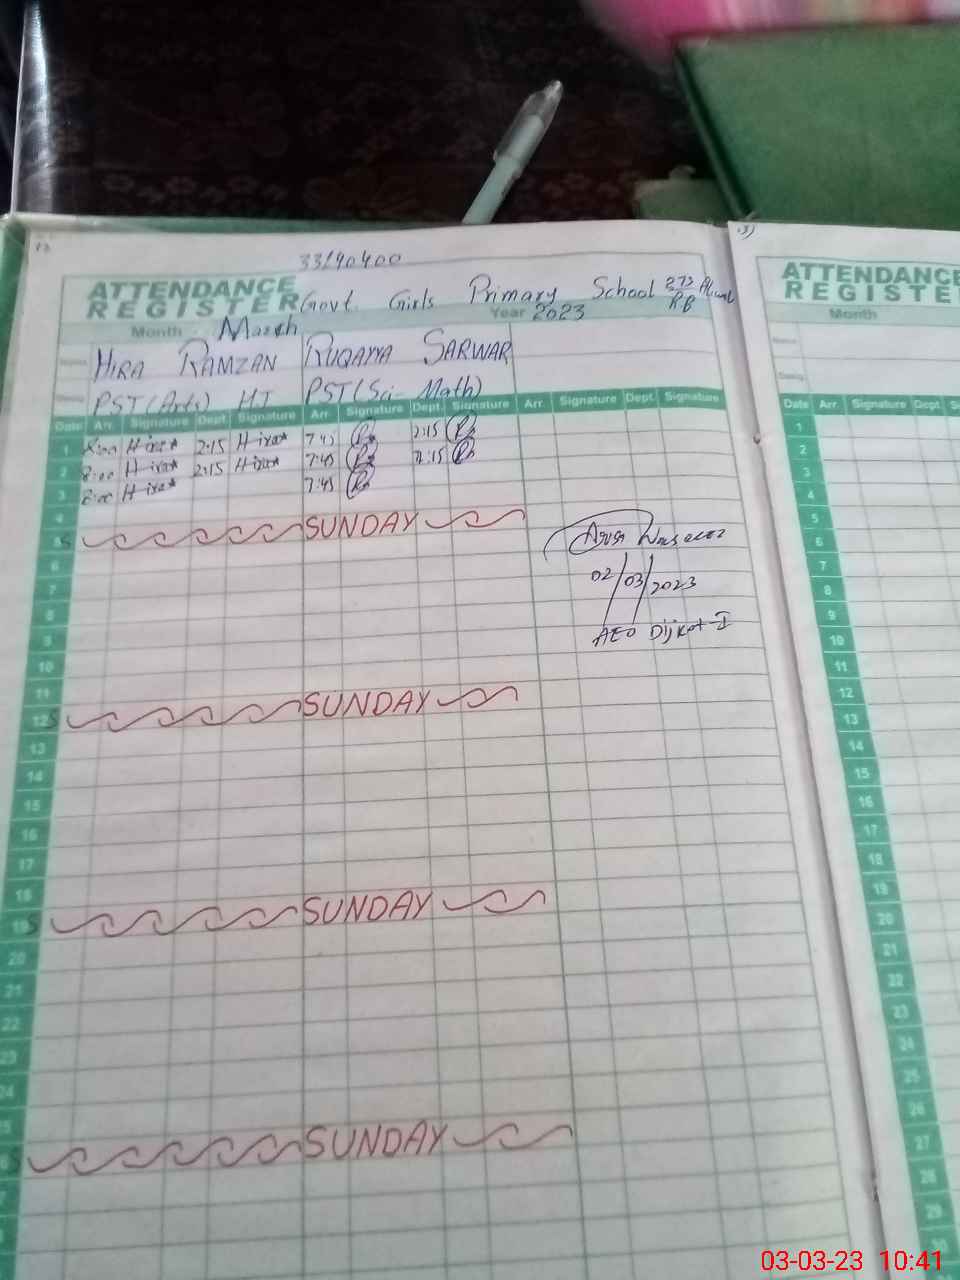 33190400
ATTENDANCE
REGISTER Govt. Girls Primary School 273 RB
Month March Year 2023
Name HIRA RAMZAN RUQAYYA SARWAR
PST(Arts) HT PST(Sci-Math)
Date Arr. Signature Dept. Signature Arr. Signature Dept. Signature Arr. Signature Dept. Signature
1 8:00 Hira 2:15 Hira 7:45 2:15
2 8:00 Hira 2:15 Hira 7:45 2:15
3 8:00 Hira 7:45
4
5 S SUNDAY
6
7
8
9
10
11
12 S SUNDAY
13
14
15
16
17
18
19 S SUNDAY
20
21
22
23
24
25
26 S SUNDAY
02/03/2023
AEO Dijkot-I
ATTENDANCE
REGISTE
Month
Name
Date Arr. Signature Dept. S
1
2
3
4
5
6
7
8
9
10
11
12
13
14
15
16
17
18
19
20
21
22
23
24
25
26
27
28
29
30
03-03-23 10:41